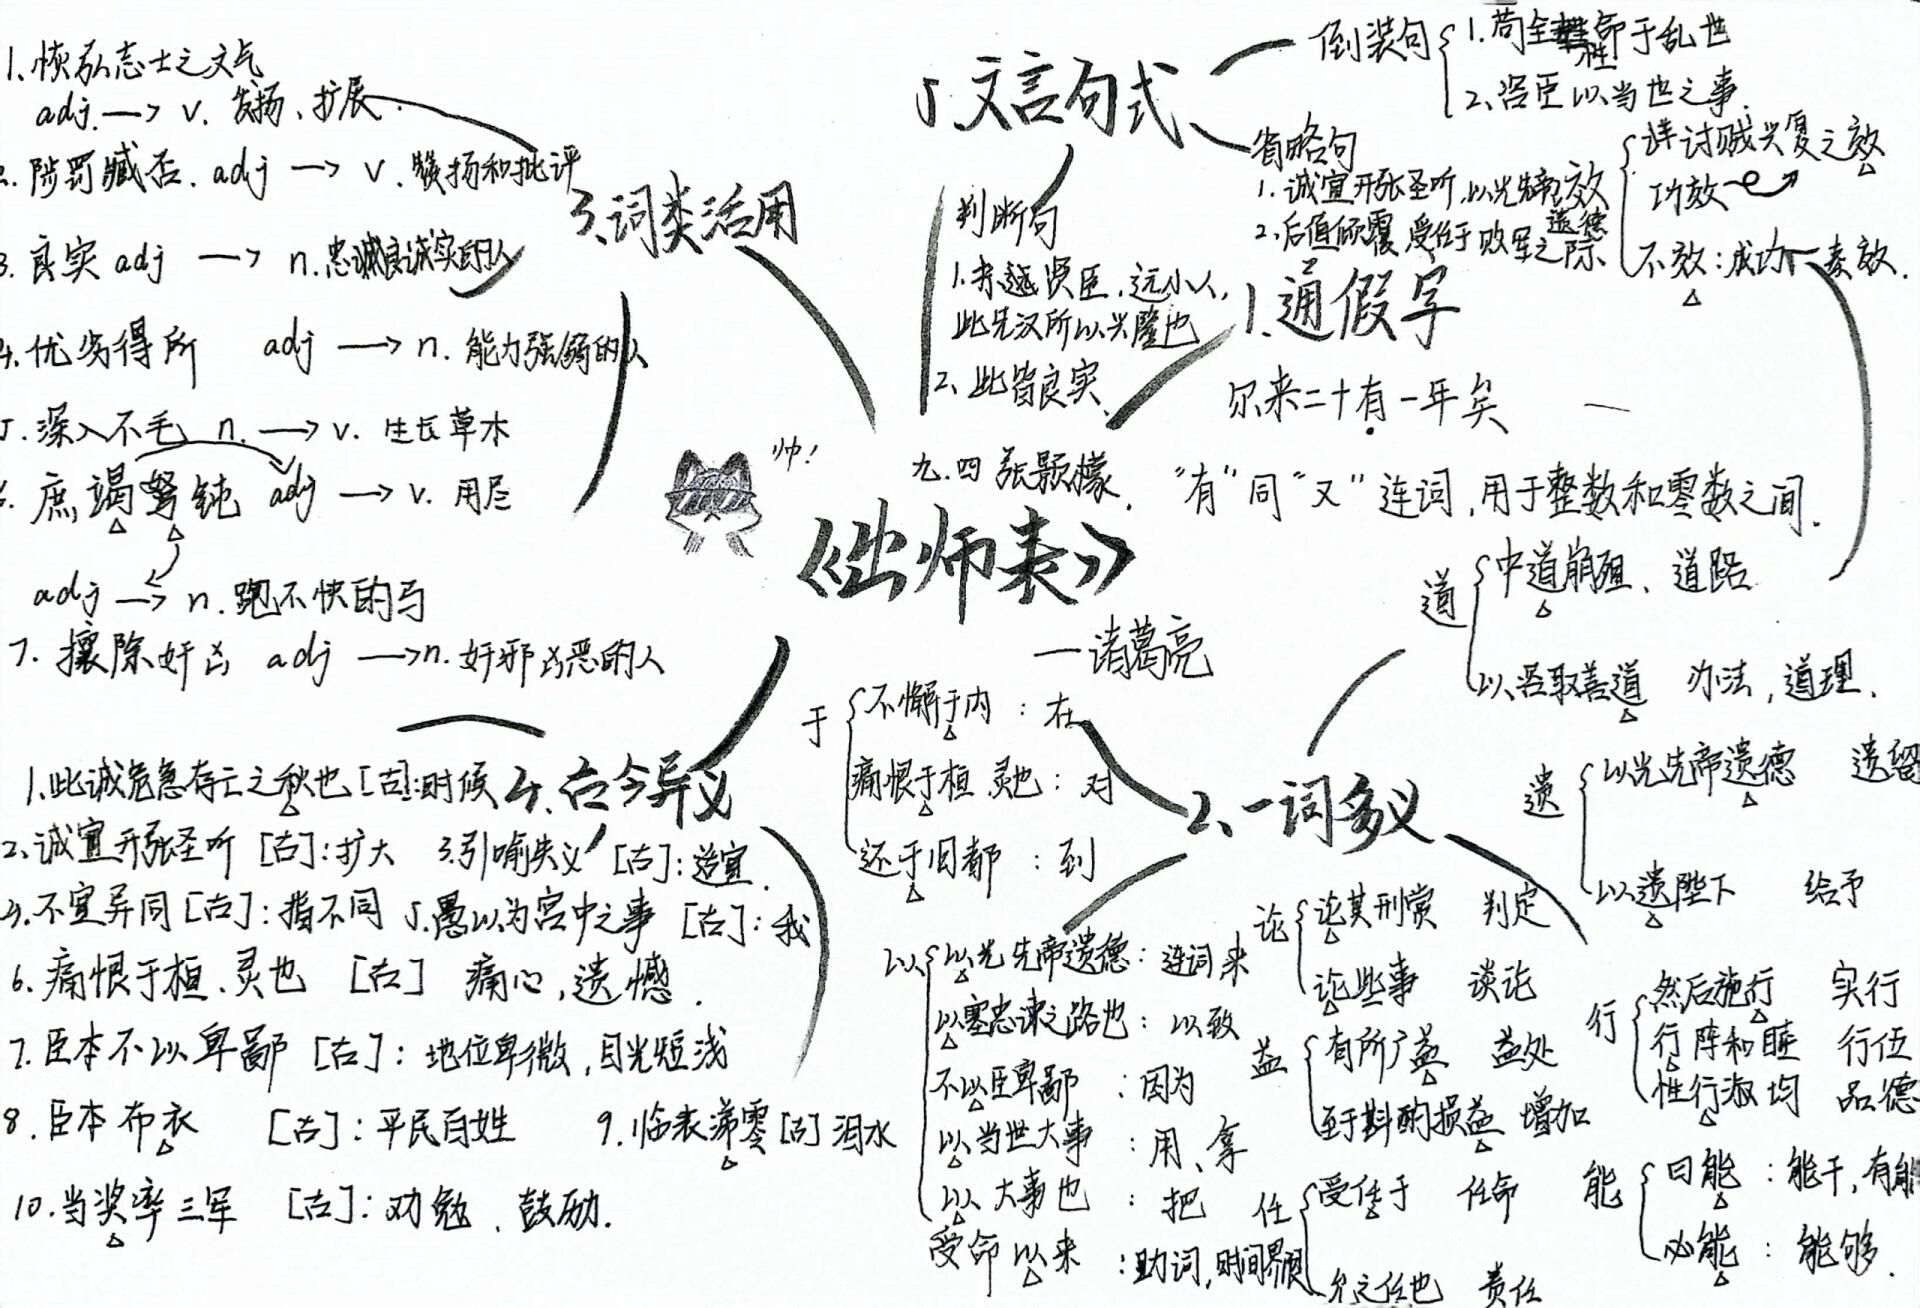 《出师表》
—诸葛亮
九.四 张颢檬
帅!
1.通假字
尔来二十有一年矣
"有"同"又"连词,用于整数和零数之间.
2、一词多义
道
中道崩殂、道路
以咨诹善道 办法,道理.
遗
以光先帝遗德 遗留
以遗陛下 给予
行
然后施行 实行
行阵和睦 行伍
性行淑均 品德
能
曰能:能干,有能
必能:能够.
论
论其刑赏 判定
论些事 谈论
益
有所广益 益处
至于斟酌损益 增加
任
受任于 任命
允之任也 责任
于
不懈于内:在
痛恨于桓 灵也:对
还于旧都:到
以
以光先帝遗德:连词 来
以塞忠谏之路也:以致
不以臣卑鄙:因为
以当世大事:用、拿
以大事也:把
受命以来:助词,时间界限
效
讨贼兴复之效
功效
不效:成功、奏效.
3、词类活用
1、恢弘志士之文气
adj.—> v. 发扬、扩展.
2. 陟罚臧否. adj —> v. 赞扬和批评
3. 良实 adj —> n.忠诚良诚实的人
4.优劣得所 adj —> n. 能力强弱的人
5.深入不毛 n.—> v. 生长草木
6. 庶竭驽钝 adj —> v. 用尽
adj —> n.跑不快的马
7. 攘除奸凶 adj —>n.奸邪凶恶的人
4.古今异义
1.此诚危急存亡之秋也[古]:时候
2.诚宜开张圣听 [古]:扩大 3.引喻失义 [古]:适宜.
4.不宜异同[古]:指不同 5.愚以为宫中之事 [古]:我
6.痛恨于桓.灵也 [古] 痛心,遗憾.
7.臣本不以卑鄙 [古]:地位卑微,目光短浅
8.臣本布衣 [古]:平民百姓 9.临表涕零[古]泪水
10.当奖率三军 [古]:劝勉、鼓励.
5.文言句式
倒装句
1.苟全性命于乱世
2、咨臣以当世之事.
省略句
1.诚宜开张圣听,以光先帝遗德
2、后值倾覆 受任于败军之际
判断句
1.亲贤臣,远小人,
此先汉所以兴隆也
2、此皆良实、